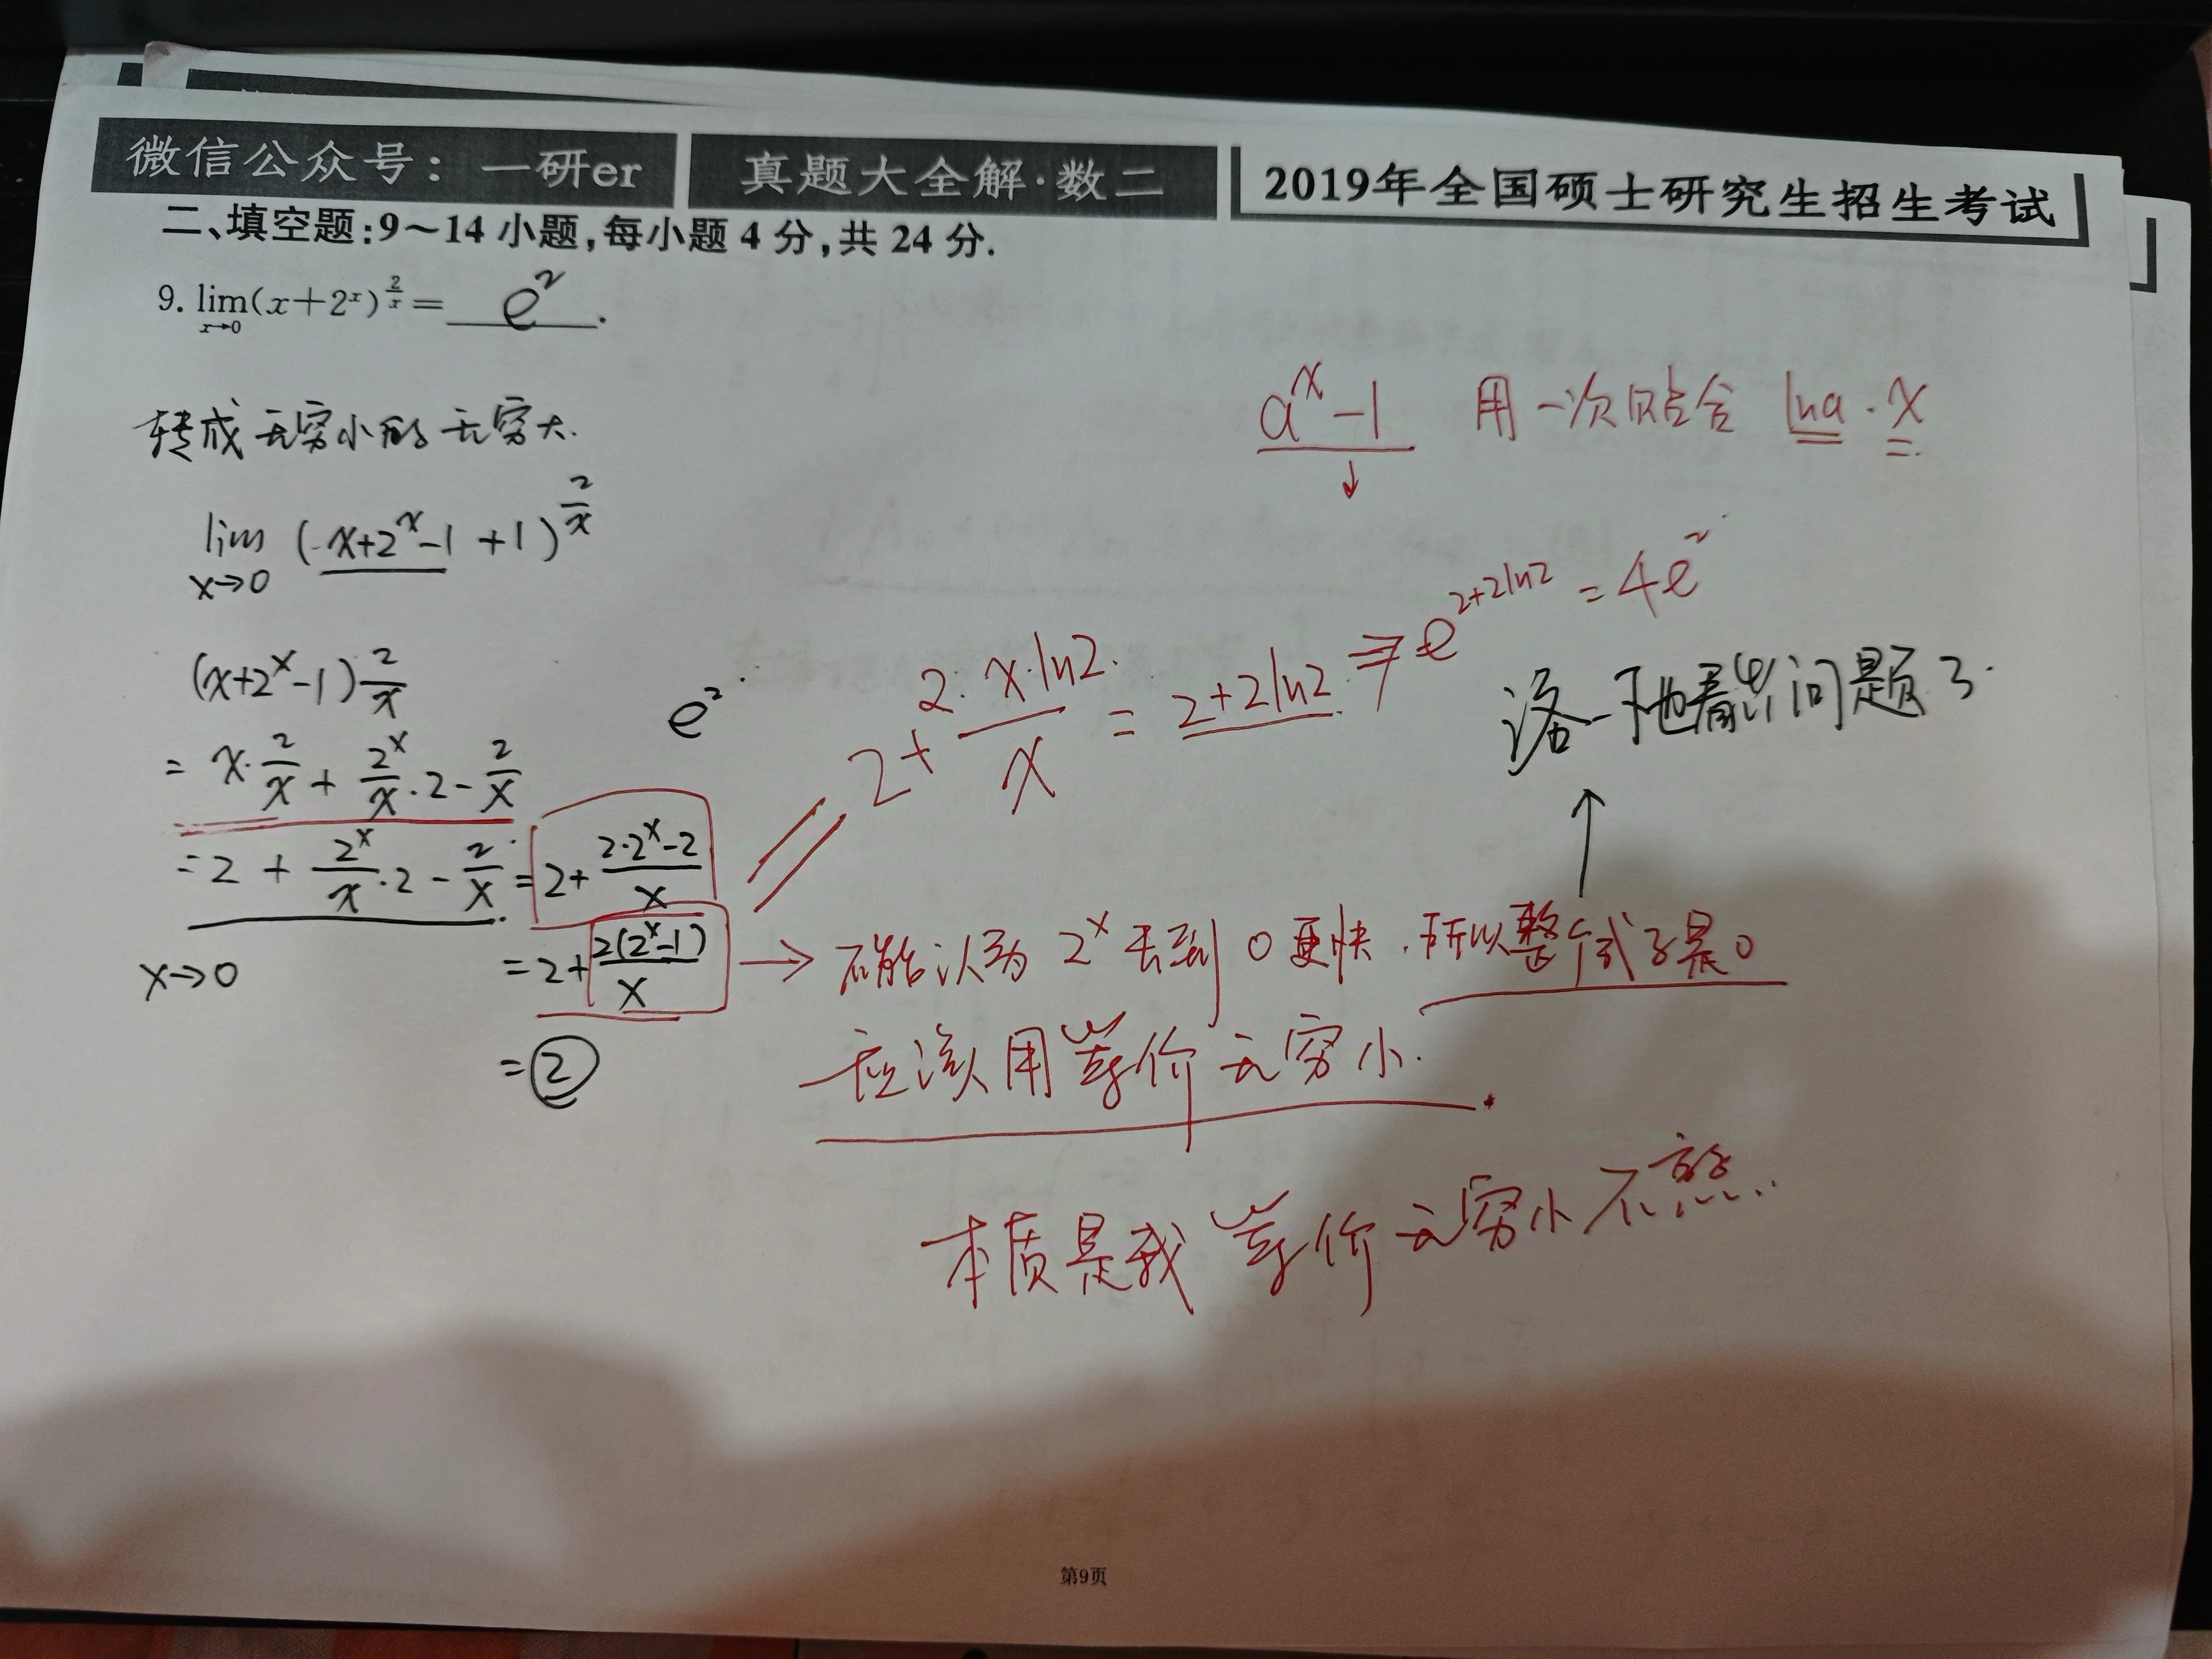 微信公众号：一研er 真题大全解·数二 2019年全国硕士研究生招生考试
二、填空题:9～14 小题,每小题 4 分,共 24 分.
9. lim(x+2^x)^(2/x) = e² .
x→0
a^x-1 用一次贴合 lna · x
↓
转成无穷小的无穷大.
lim (x+2^x-1 +1)^(2/x)
x→0
(x+2^x-1) 2/x
= x·2/x + 2^x/x ·2 - 2/x
= 2 + 2^x/x ·2 - 2/x = 2+ (2·2^x-2)/x
x→0
= 2+ 2(2^x-1)/x
= 2
e² ·
2+ 2·x·ln2/x = 2+2ln2 ⇒ e^(2+2ln2) = 4e²
洛一下也看出问题了.
↑
→ 不能认为 2^x 去到 0 更快, 所以整个式子是0
应该用等价无穷小.
本质是我等价无穷小不熟...
第9页